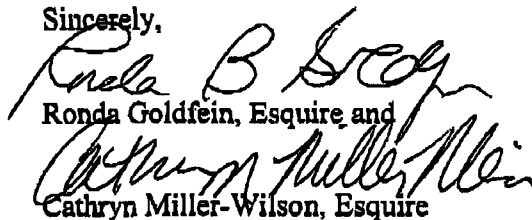 Sincerely,
Ronda B
Ronda Goldfein, Esquire and
Cathryn Miller
Cathryn Miller-Wilson, Esquire